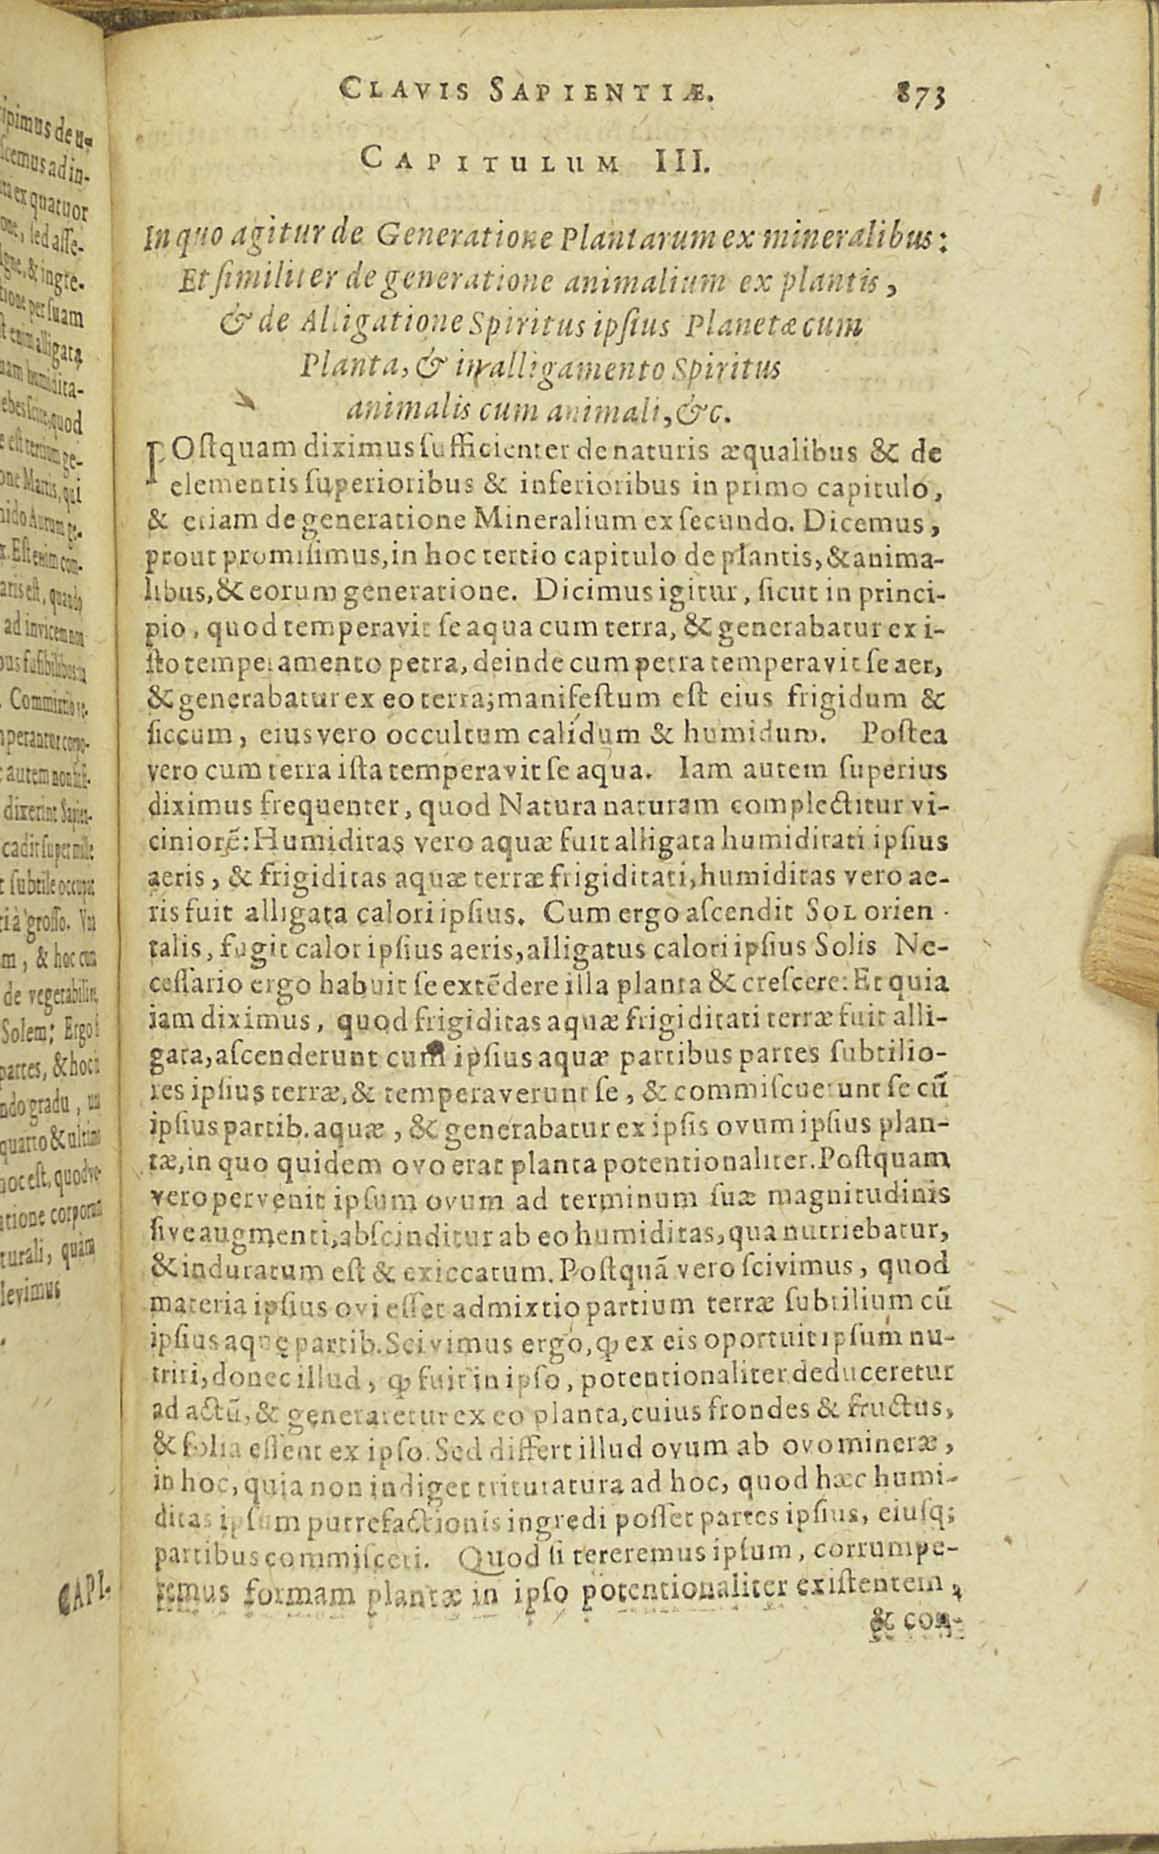 CLAVIS SAPIENTIÆ. 873
CAPITULUM III.
In quo agitur de Generatione Plantarum ex mineralibus:
Et similiter de generatione animalium ex plantis,
& de Alligatione Spiritus ipsius Planetæ cum
Planta, & in alligamento Spiritus
animalis cum animali, &c.
POstquam diximus sufficienter de naturis æqualibus & de
elementis superioribus & inferioribus in primo capitulo,
& etiam de generatione Mineralium ex secundo. Dicemus,
prout promisimus, in hoc tertio capitulo de plantis, & anima-
libus, & eorum generatione. Dicimus igitur, sicut in princi-
pio, quod temperavit se aqua cum terra, & generabatur ex i-
sto temperamento petra, deinde cum petra temperavit se aer,
& generabatur ex eo terra; manifestum est eius frigidum &
siccum, eius vero occultum calidum & humidum. Postea
vero cum terra ista temperavit se aqua. Iam autem superius
diximus frequenter, quod Natura naturam complectitur vi-
ciniorē: Humiditas vero aquæ fuit alligata humiditati ipsius
aeris, & frigiditas aquæ terræ frigiditati, humiditas vero ae-
ris fuit alligata calori ipsius. Cum ergo ascendit SOL orien-
talis, fugit calor ipsius aeris, alligatus calori ipsius Solis Ne-
cessario ergo habuit se extēdere illa planta & crescere: Et quia
iam diximus, quod frigiditas aquæ frigiditati terræ fuit alli-
gata, ascenderunt cum ipsius aquæ partibus partes subtilio-
res ipsius terræ, & temperaverunt se, & commiscuerunt se cū
ipsius partib. aquæ, & generabatur ex ipsis ovum ipsius plan-
tæ, in quo quidem ovo erat planta potentionaliter. Postquam
vero pervenit ipsum ovum ad terminum suæ magnitudinis
sive augmenti, abscinditur ab eo humiditas, qua nutriebatur,
& induratum est & exiccatum. Postquā vero scivimus, quod
materia ipsius ovi esset admixtio partium terræ subtilium cū
ipsius aquę partib. Scivimus ergo, ꝙ ex eis oportuit ipsum nu-
triri, donec illud, ꝙ fuit in ipso, potentionaliter deduceretur
ad actū, & generaretur ex eo planta, cuius frondes & fructus,
& folia essent ex ipso. Sed differt illud ovum ab ovo mineræ,
in hoc, quia non indiget trituratura ad hoc, quod hæc humi-
ditas ipsum putrefactionis ingredi posset partes ipsius, eiusq;
partibus commisceri. Quod si tereremus ipsum, corrumpe-
remus formam plantæ in ipso potentionaliter existentem,
& con-
ipimus de u-
scemus ad in-
ex quatuor
sed asse-
& ingre-
tione per suam
enim alligata
humidita-
ebes scire, quod
est tertium ge-
one Martis, qui
Aurum ge-
Est enim con-
aris est, quando
ad invicem non
fusibilibus
Commixtio
autem non
dixerint Sapien-
cadit super mille
subtile occupat
à grosso.
& hoc cum
de vegetabilibus,
Solem; Ergo
partes, & hoc
gradu,
quarto & ultimo
hoc est, quod
corporum
turali, quàm
levimus
CAPI-